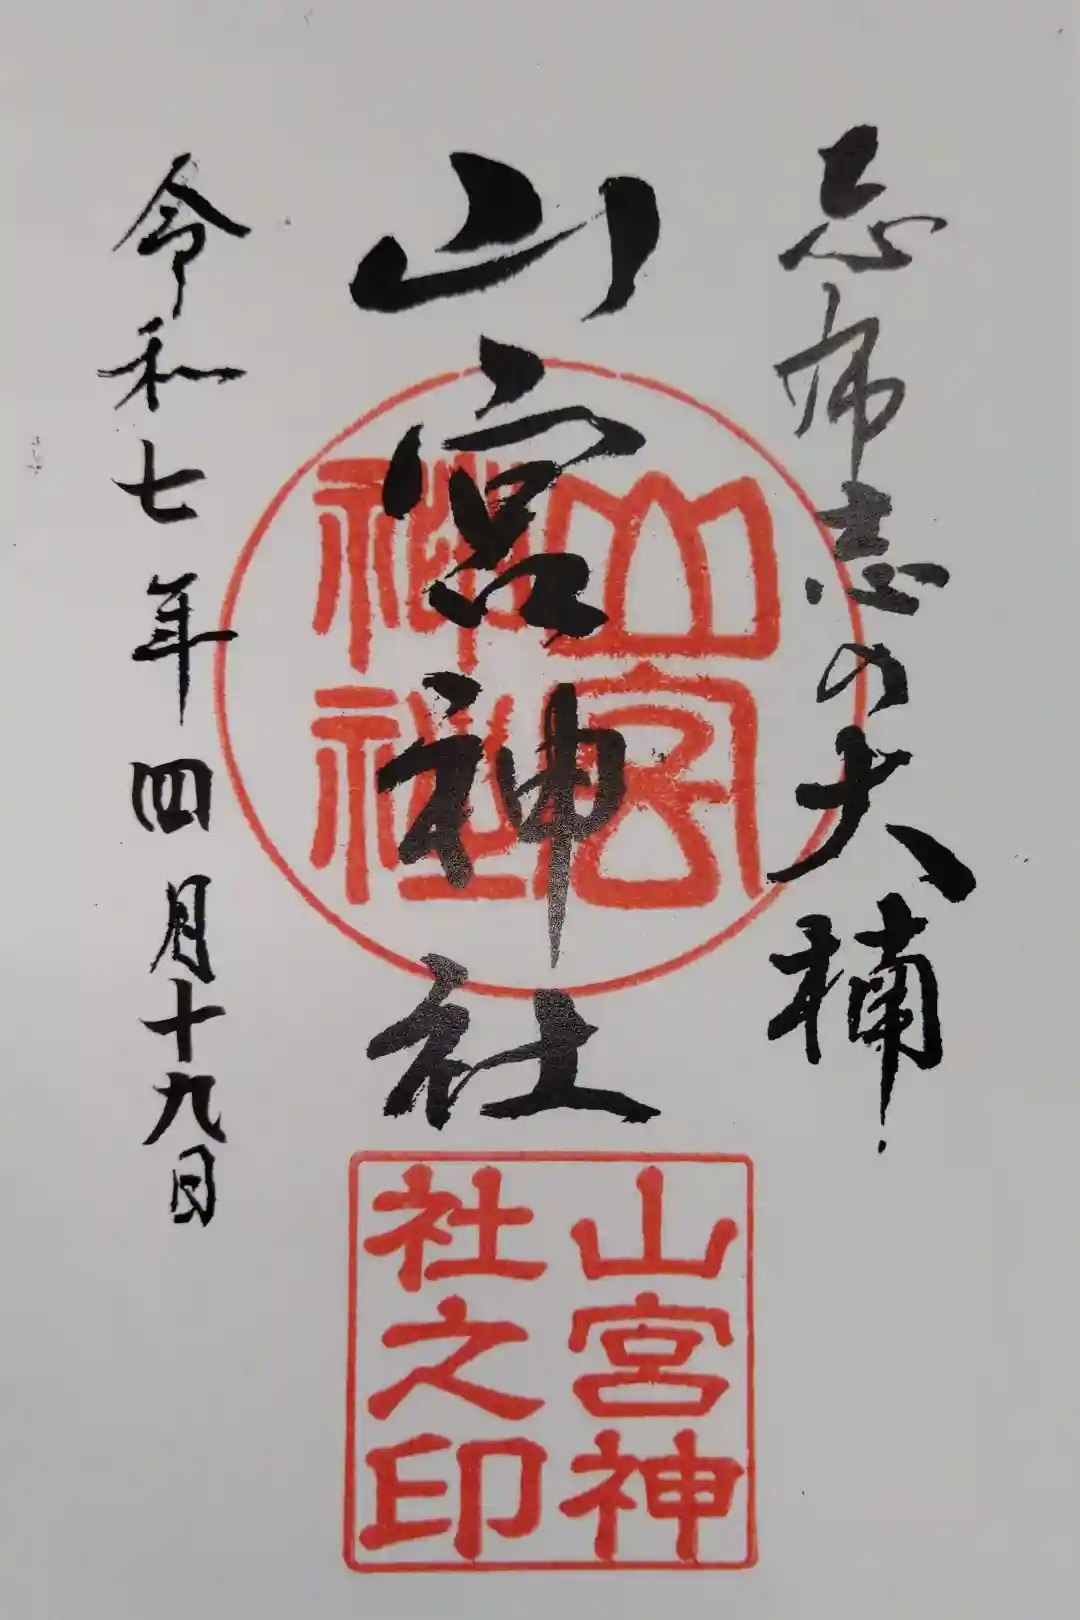 志布志の大楠
山宮神社
令和七年四月十九日
山宮
神社
山宮神
社之印